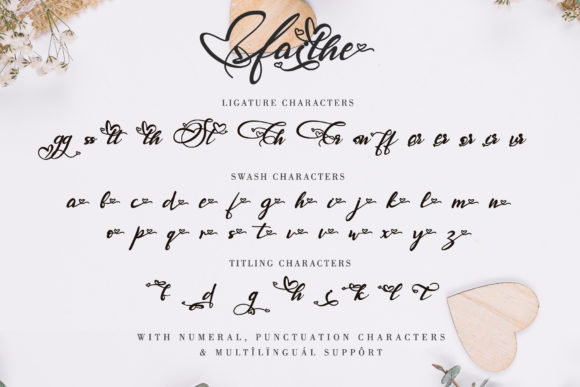 LIGATURE CHARACTERS
gg ss tt th St ff or ur
SWASH CHARACTERS
a b c d e f g h i j k l m n
o p q r s t u v w x y z
TITLING CHARACTERS
d g h s k l t
WITH NUMERAL, PUNCTUATION CHARACTERS
& MULTÎLÏNGUÁL SUPPÔRT